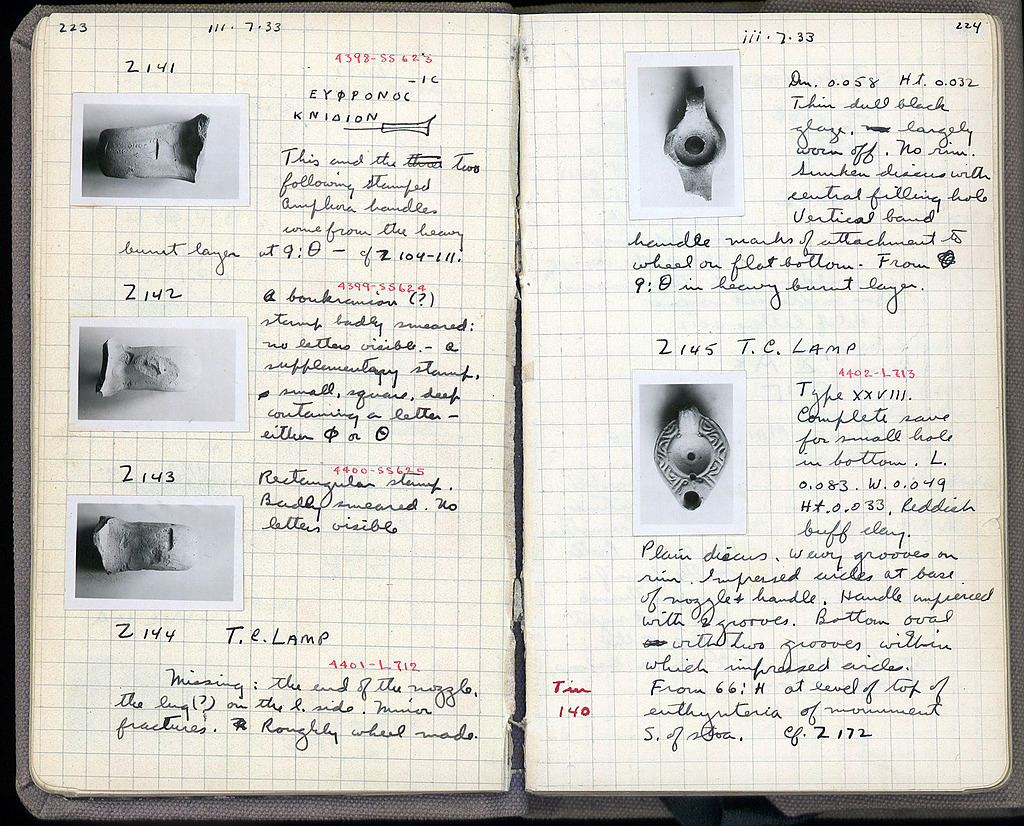 223
iii · 7 · 33
Z 141
4398-SS 623
-ΙC
ΕΥΦΡΟΝΟC
ΚΝΙΔΙΟΝ
This and the three two
following stamped
Amphora handles
come from the heavy
burnt layer at 9:Θ — cf Z 104-111.
Z 142
4399-SS624
A boukranion (?)
stamp badly smeared:
no letters visible. - a
supplementary stamp,
small, square, deep
containing a letter -
either Φ or Θ
Z 143
4400-SS625
Rectangular stamp.
Badly smeared. No
letters visible
Z 144 T.C. LAMP
4401-L712
Missing: the end of the nozzle,
the lug(?) on the l. side. Minor
fractures. Roughly wheel made.
224
iii · 7 · 33
Dm. 0.058 Ht. 0.032
Thin dull black
glaze, largely
worn off. No rim.
Sunken discus with
central filling hole
Vertical band
handle marks of attachment to
wheel on flat bottom. From
9:Θ in heavy burnt layer.
Z 145 T.C. LAMP
4402-L713
Type XXVIII.
Complete save
for small hole
in bottom. L.
0.083. W. 0.049
Ht. 0.033. Reddish
buff clay.
Plain discus. Wavy grooves on
rim. Impressed circles at base
of nozzle & handle. Handle unpierced
with 2 grooves. Bottom oval
with two grooves within
which impressed circles.
Tin
140
From 66:H at level of top of
euthynteria of monument
S. of stoa. Cf. Z 172